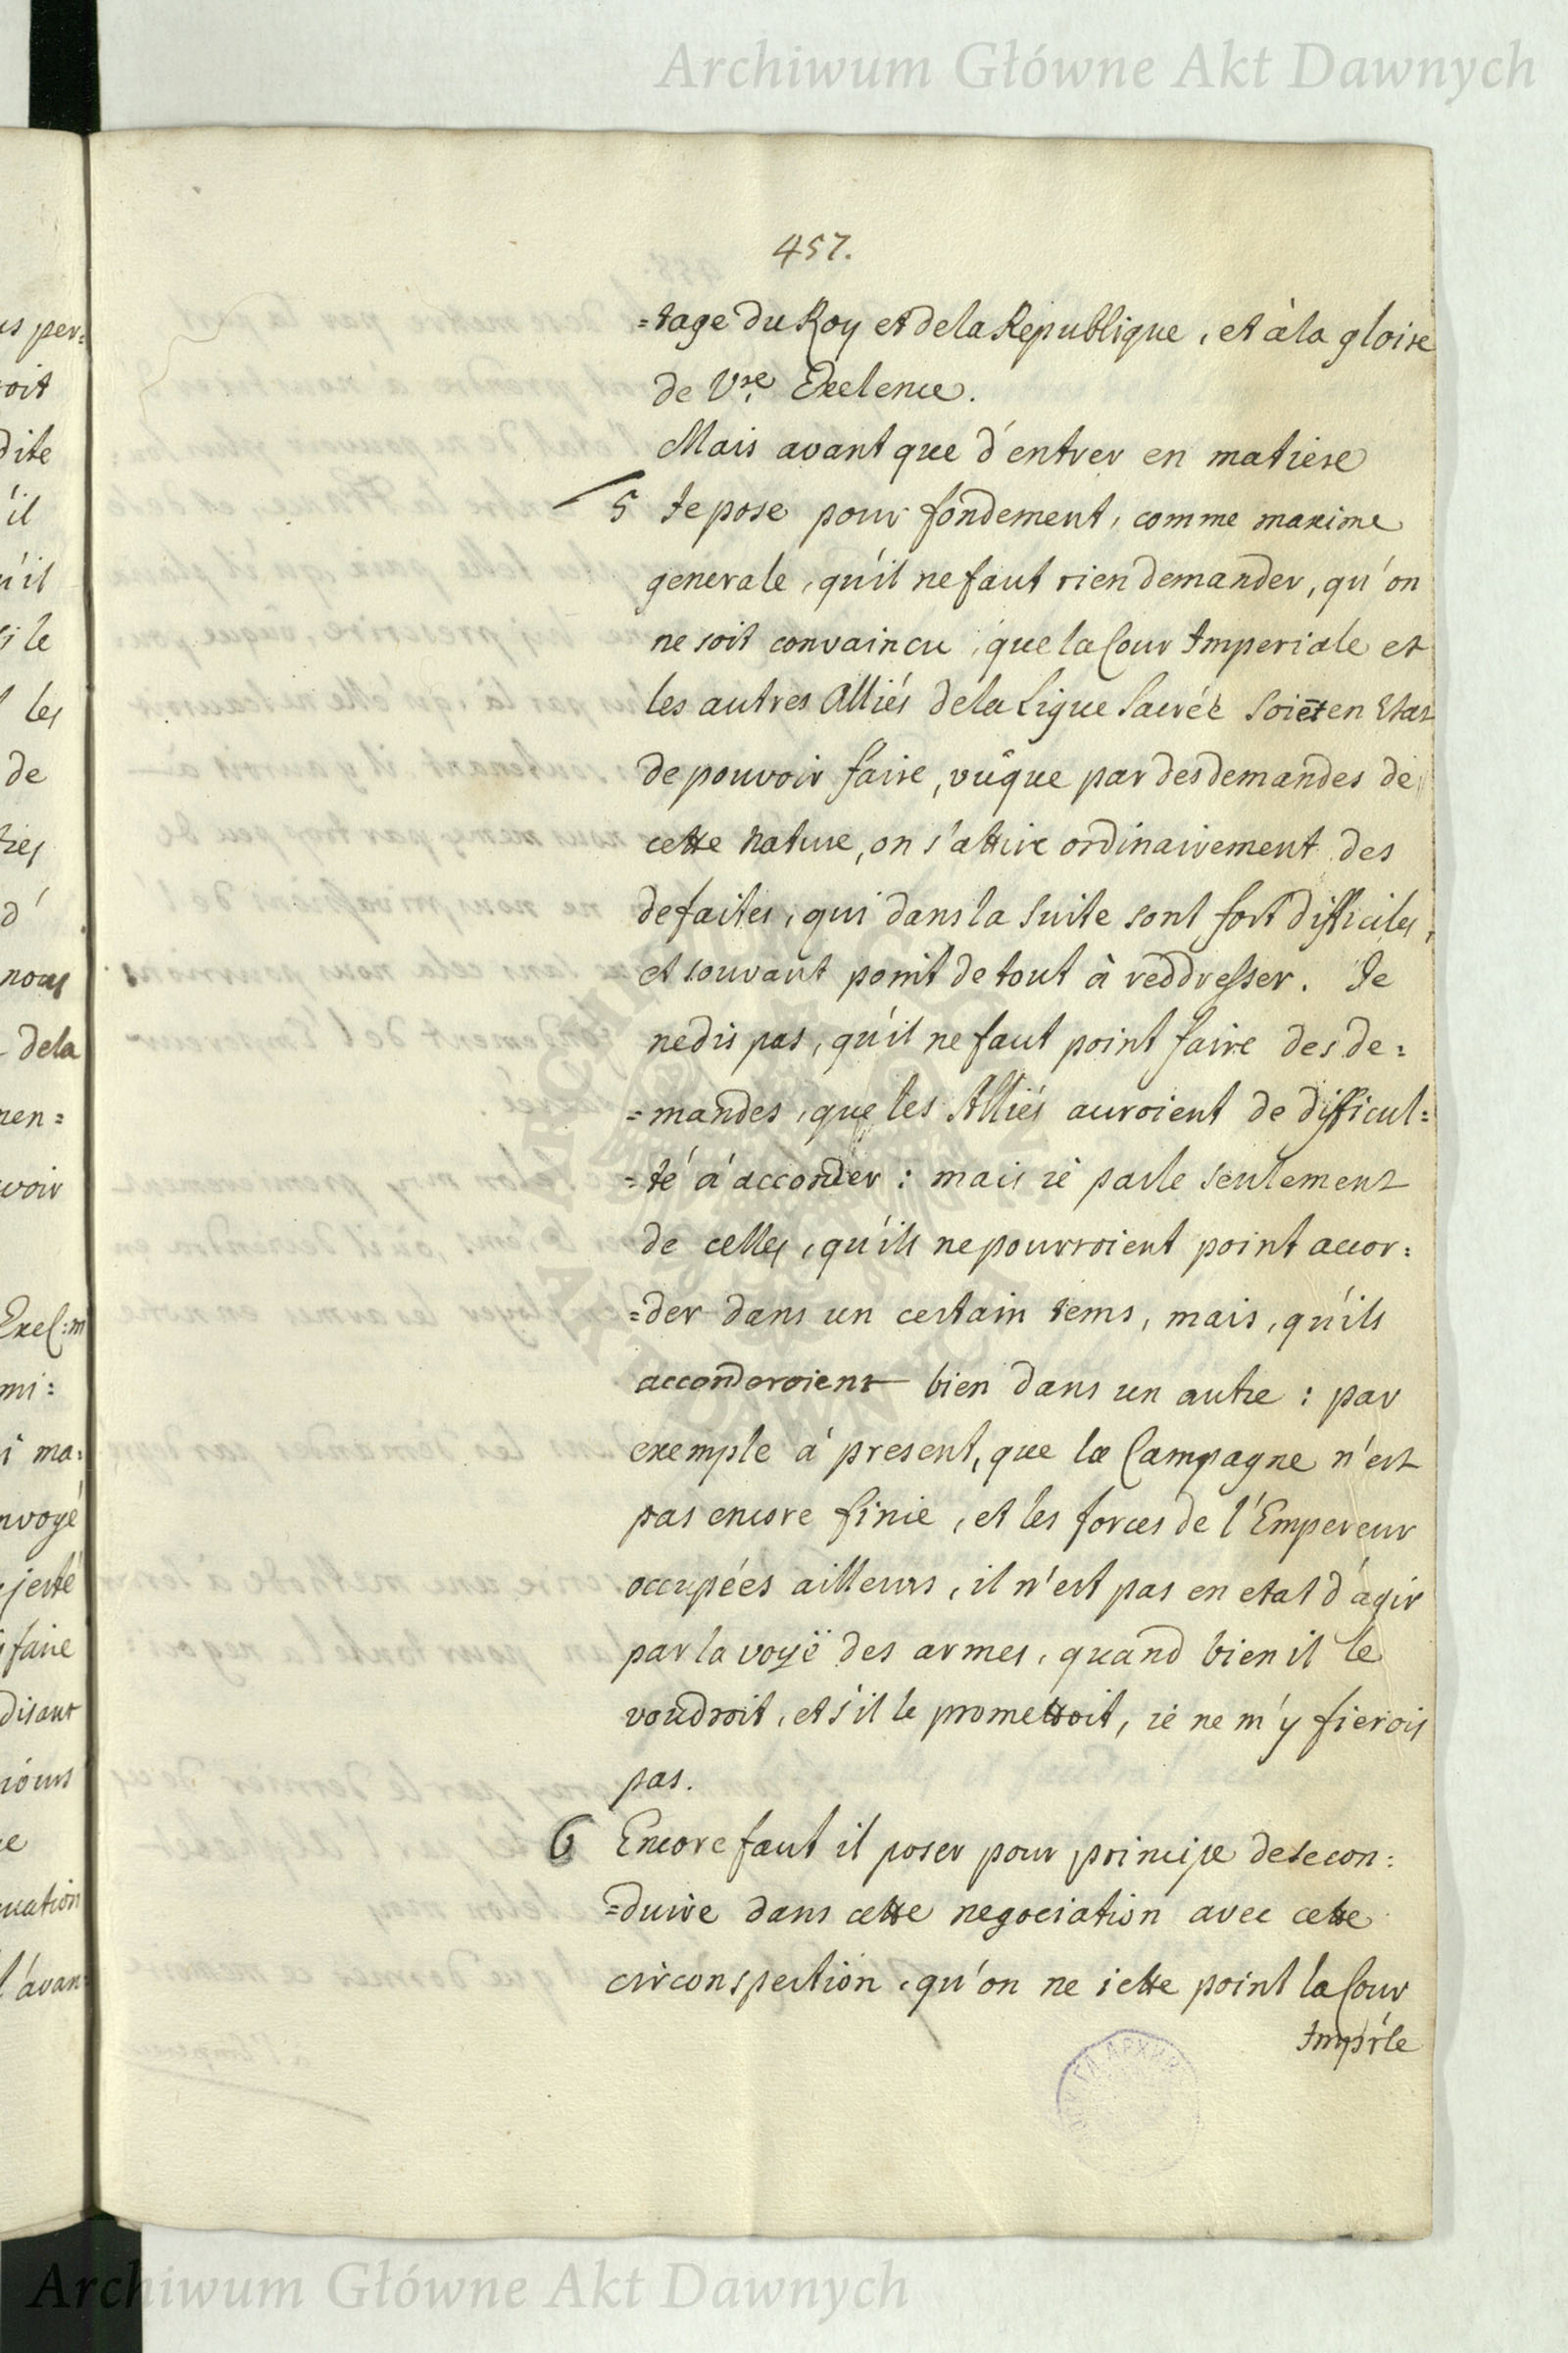 Archiwum Główne Akt Dawnych
457.
=tage du Roy et de la Republique, et à la gloire
de Vre. Excelence.
Mais avant que d'entrer en matiere
5 Je pose pour fondement, comme maxime
generale, qu'il ne faut rien demander, qu'on
ne soit convaincu, que la Cour Imperiale et
les autres Alliés de la Ligue Sacrée soiēt en Etat
de pouvoir faire, vûque par des demandes de
cette nature, on s'attire ordinairement des
defaites, qui dans la suite sont fort difficiles,
et souvant point de tout à reddresser. Je
ne dis pas, qu'il ne faut point faire des de=
=mandes, que les Alliés auroient de difficul=
=té à accorder : mais ie parle seulement
de celles, qu'ils ne pourroient point accor=
=der dans un certain tems, mais, qu'ils
accorderoient bien dans un autre : par
exemple à present, que la Campagne n'est
pas encore finie, et les forces de l'Empereur
occupées ailleurs, il n'est pas en etat d'agir
par la voyë des armes, quand bien il le
voudroit, et s'il le promettoit, ie ne m'y fierois
pas.
6 Encore faut il poser pour principe de se con=
=duire dans cette negociation avec cette
circonspection, qu'on ne iette point la Cour
Imp'rle
us per=
oit
dite
'il
u'il
si le
les
de
d'
nous
dela
nen=
voir
Excel:m
mi=
i ma=
nvoyé
jesté
faire
disant
uation
l'avan=
Archiwum Główne Akt Dawnych